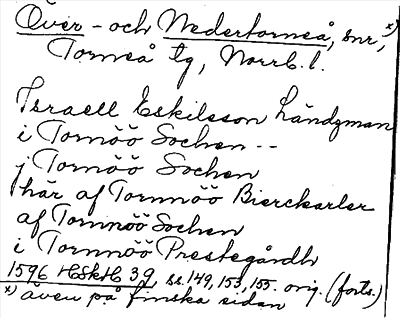 Över- och Nedertorneå, snr, x)
Torneå tg, Norrb. l.
Israell Eskilsson Ländzman
i Tornöö Sochen --
j Tornöö Sochen
här af Tornnöö Bierckarler
af Tornnöö Sochen
i Tornnöö Prestegårdh
1596 HSkH 39, ss. 149, 153, 155. orig. (forts.)
x) även på finska sidan